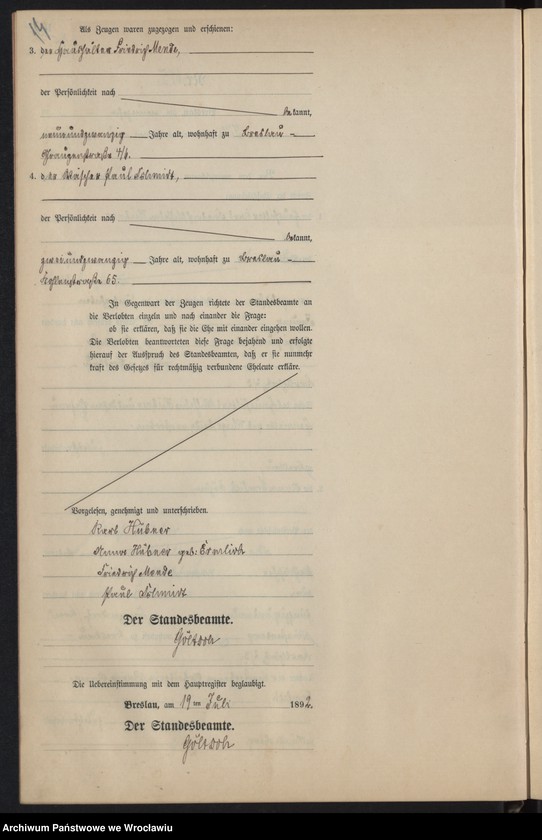 14
Als Zeugen waren zugezogen und erschienen:
3. der Haushälter Friedrich Mende,
der Persönlichkeit nach
bekannt,
neunundzwanzig Jahre alt, wohnhaft zu Breslau
4/6.
4. der Wäscher Paul Schmidt,
der Persönlichkeit nach
bekannt,
zweiundzwanzig Jahre alt, wohnhaft zu Breslau
65.
In Gegenwart der Zeugen richtete der Standesbeamte an
die Verlobten einzeln und nach einander die Frage:
ob sie erklären, daß sie die Ehe mit einander eingehen wollen.
Die Verlobten beantworteten diese Frage bejahend und erfolgte
hierauf der Ausspruch des Standesbeamten, daß er sie nunmehr
kraft des Gesetzes für rechtmäßig verbundene Eheleute erkläre.
Vorgelesen, genehmigt und unterschrieben.
Karl Hübner
Hübner geb:
Friedrich Mende
Paul Schmidt
Der Standesbeamte.
Die Uebereinstimmung mit dem Hauptregister beglaubigt.
Breslau, am 19 ten Juli 1892.
Der Standesbeamte.
Archiwum Państwowe we Wrocławiu